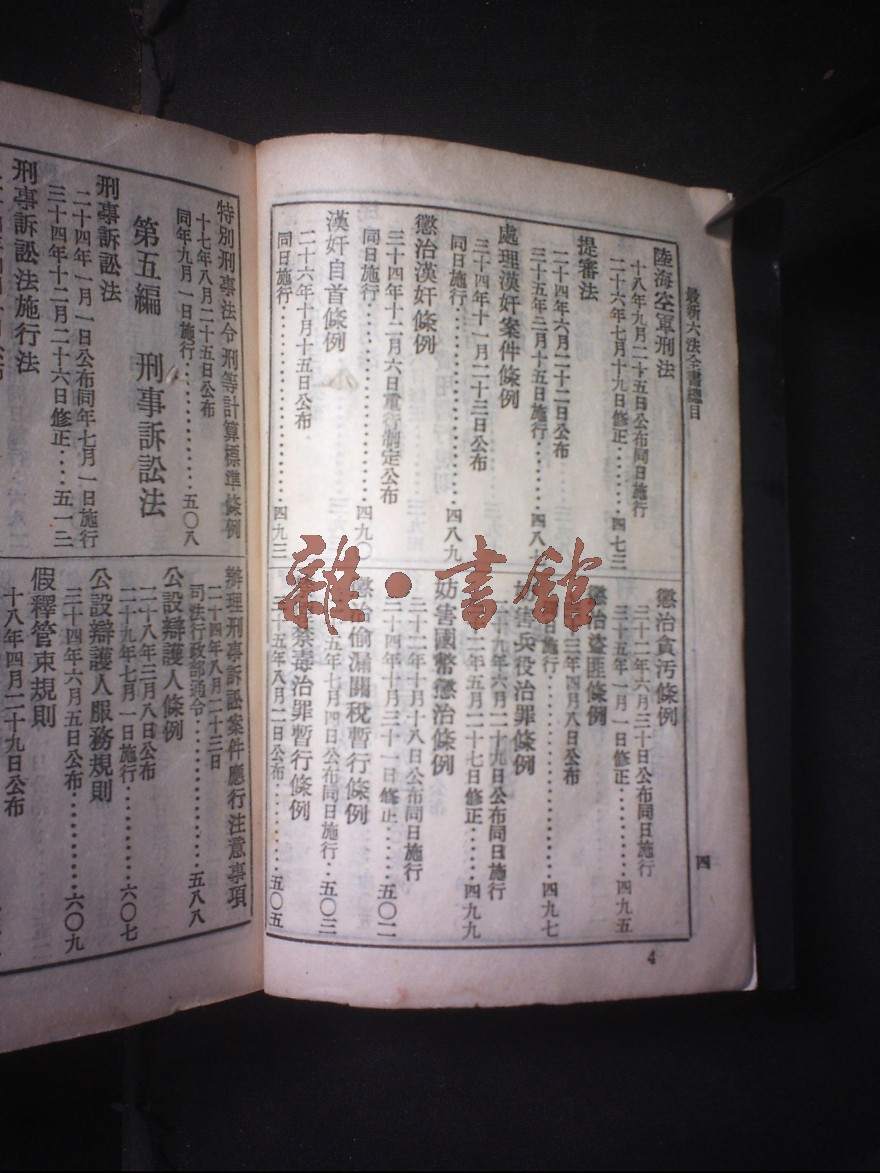 最新六法全書總目
陸海空軍刑法
十八年九月二十五日公布同日施行
二十六年七月十九日修正····四七三
提審法
二十四年六月二十二日公布
三十五年三月十五日施行
處理漢奸案件條例
三十四年十一月二十三日公布
同日施行··········四八九
懲治漢奸條例
三十四年十二月六日重行制定公布
同日施行··········四九〇
漢奸自首條例
二十六年十月十五日公布
同日施行··········四九三
懲治貪污條例
三十二年六月三十日公布同日施行
三十五年一月一日修正······四九五
懲治盜匪條例
三年四月八日公布
日施行··········四九七
妨害兵役治罪條例
十九年六月二十九日公布同日施行
三十二年五月二十七日修正····四九九
妨害國幣懲治條例
三十二年十月十八日公布同日施行
二十四年十月三十一日修正····五〇二
懲治偷漏關稅暫行條例
五年七月四日公布同日施行··五〇三
禁毒治罪暫行條例
三十五年八月二日公布······五〇五
四
4
特別刑事法令刑等計算標準條例
十七年八月二十五日公布
同年九月一日施行········五〇八
第五編 刑事訴訟法
刑事訴訟法
二十四年一月一日公布同年七月一日施行
三十四年十二月二十六日修正····五一三
刑事訴訟法施行法
辦理刑事訴訟案件應行注意事項
二十四年八月二十三日
司法行政部通令········五八八
公設辯護人條例
二十八年三月八日公布
二十九年七月一日施行······六〇七
公設辯護人服務規則
三十四年六月五日公布······六〇九
假釋管束規則
十八年四月二十九日公布
雜·書館